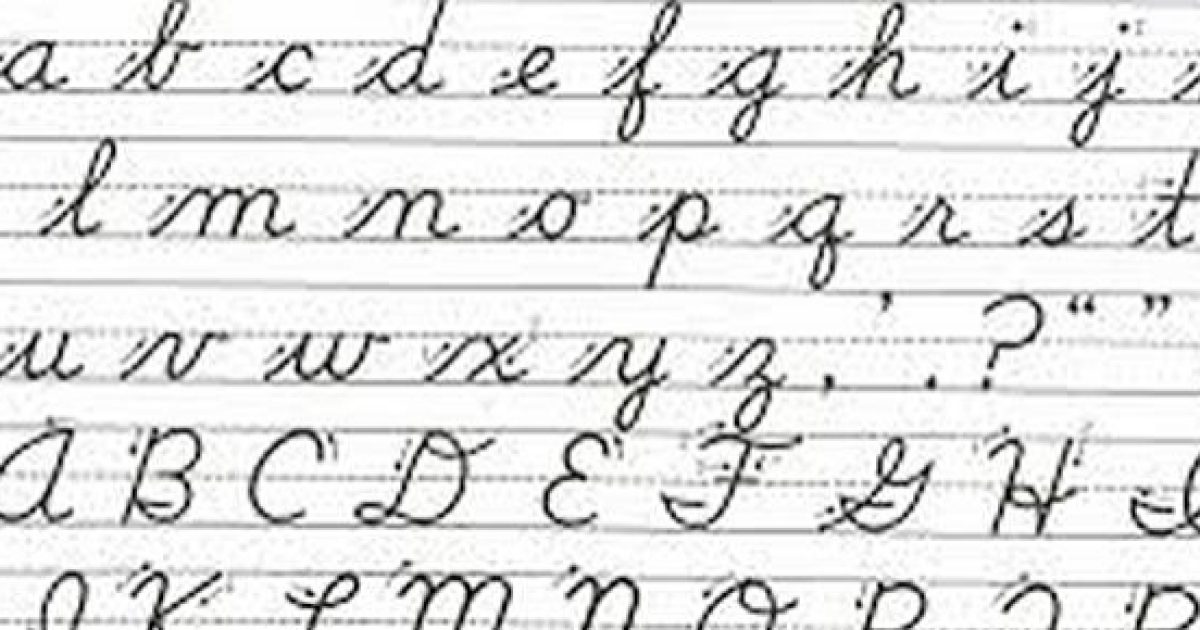 a b c d e f g h i j
l m n o p q r s t
u v w x y z , ' . ? “ ”
A B C D E F G H I
J K L M N O P Q R